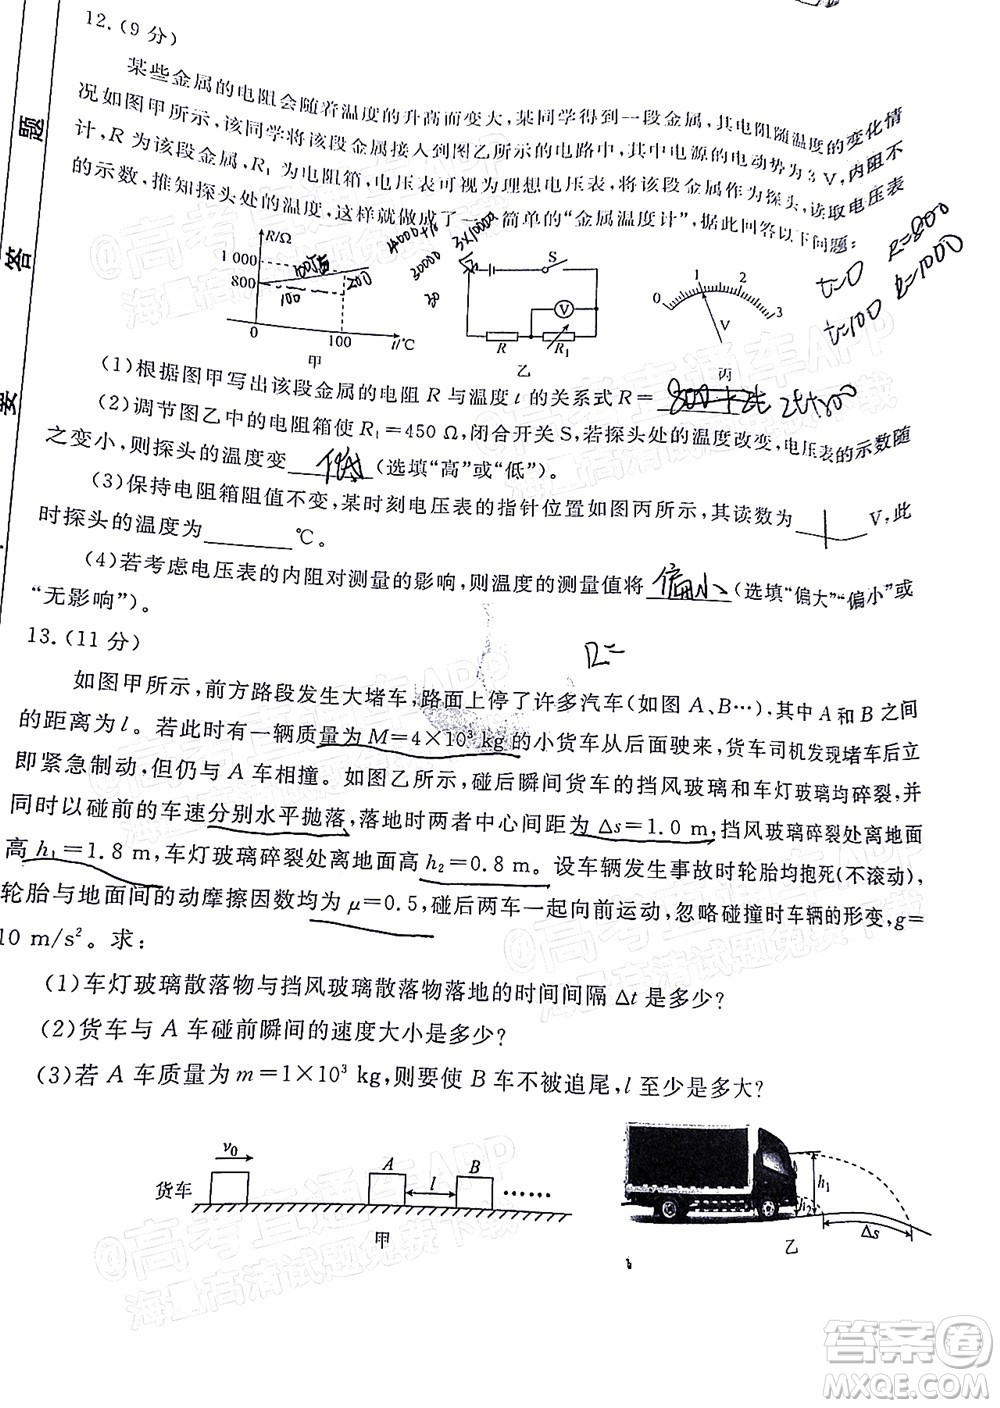 12.(9 分)
某些金属的电阻会随着温度的升高而变大,某同学得到一段金属,其电阻随温度的变化情
况如图甲所示,该同学将该段金属接入到图乙所示的电路中,其中电源的电动势为3 V,内阻不
计,R 为该段金属,R₁ 为电阻箱,电压表可视为理想电压表,将该段金属作为探头,读取电压表
的示数,推知探头处的温度,这样就做成了一个简单的“金属温度计”,据此回答以下问题:
R/Ω
1 000
800
0
100
t/℃
甲
100
200
S
V
R
R₁
乙
0
1
2
3
V
丙
t=0 R=800
t=100 R=1000
(1)根据图甲写出该段金属的电阻 R 与温度 t 的关系式 R= 800+2t 2t+800
(2)调节图乙中的电阻箱使 R₁=450 Ω,闭合开关 S,若探头处的温度改变,电压表的示数随
之变小,则探头的温度变 低 (选填“高”或“低”)。
(3)保持电阻箱阻值不变,某时刻电压表的指针位置如图丙所示,其读数为 1 V,此
时探头的温度为 ℃。
(4)若考虑电压表的内阻对测量的影响,则温度的测量值将 偏小 (选填“偏大”“偏小”或
“无影响”)。
R=
13.(11 分)
如图甲所示,前方路段发生大堵车,路面上停了许多汽车(如图 A、B…),其中 A 和 B 之间
的距离为 l。若此时有一辆质量为 M=4×10³ kg 的小货车从后面驶来,货车司机发现堵车后立
即紧急制动,但仍与 A 车相撞。如图乙所示,碰后瞬间货车的挡风玻璃和车灯玻璃均碎裂,并
同时以碰前的车速分别水平抛落,落地时两者中心间距为 Δs=1.0 m,挡风玻璃碎裂处离地面
高 h₁=1.8 m,车灯玻璃碎裂处离地面高 h₂=0.8 m。设车辆发生事故时轮胎均抱死(不滚动),
轮胎与地面间的动摩擦因数均为 μ=0.5,碰后两车一起向前运动,忽略碰撞时车辆的形变,g=
10 m/s²。求:
(1)车灯玻璃散落物与挡风玻璃散落物落地的时间间隔 Δt 是多少?
(2)货车与 A 车碰前瞬间的速度大小是多少?
(3)若 A 车质量为 m=1×10³ kg,则要使 B 车不被追尾,l 至少是多大?
v₀
货车
A
B
l
……
甲
h₁
h₂
Δs
乙
题
答
要
@高考直通车APP
海量高清试题免费下载
答案卷
MXQE.COM